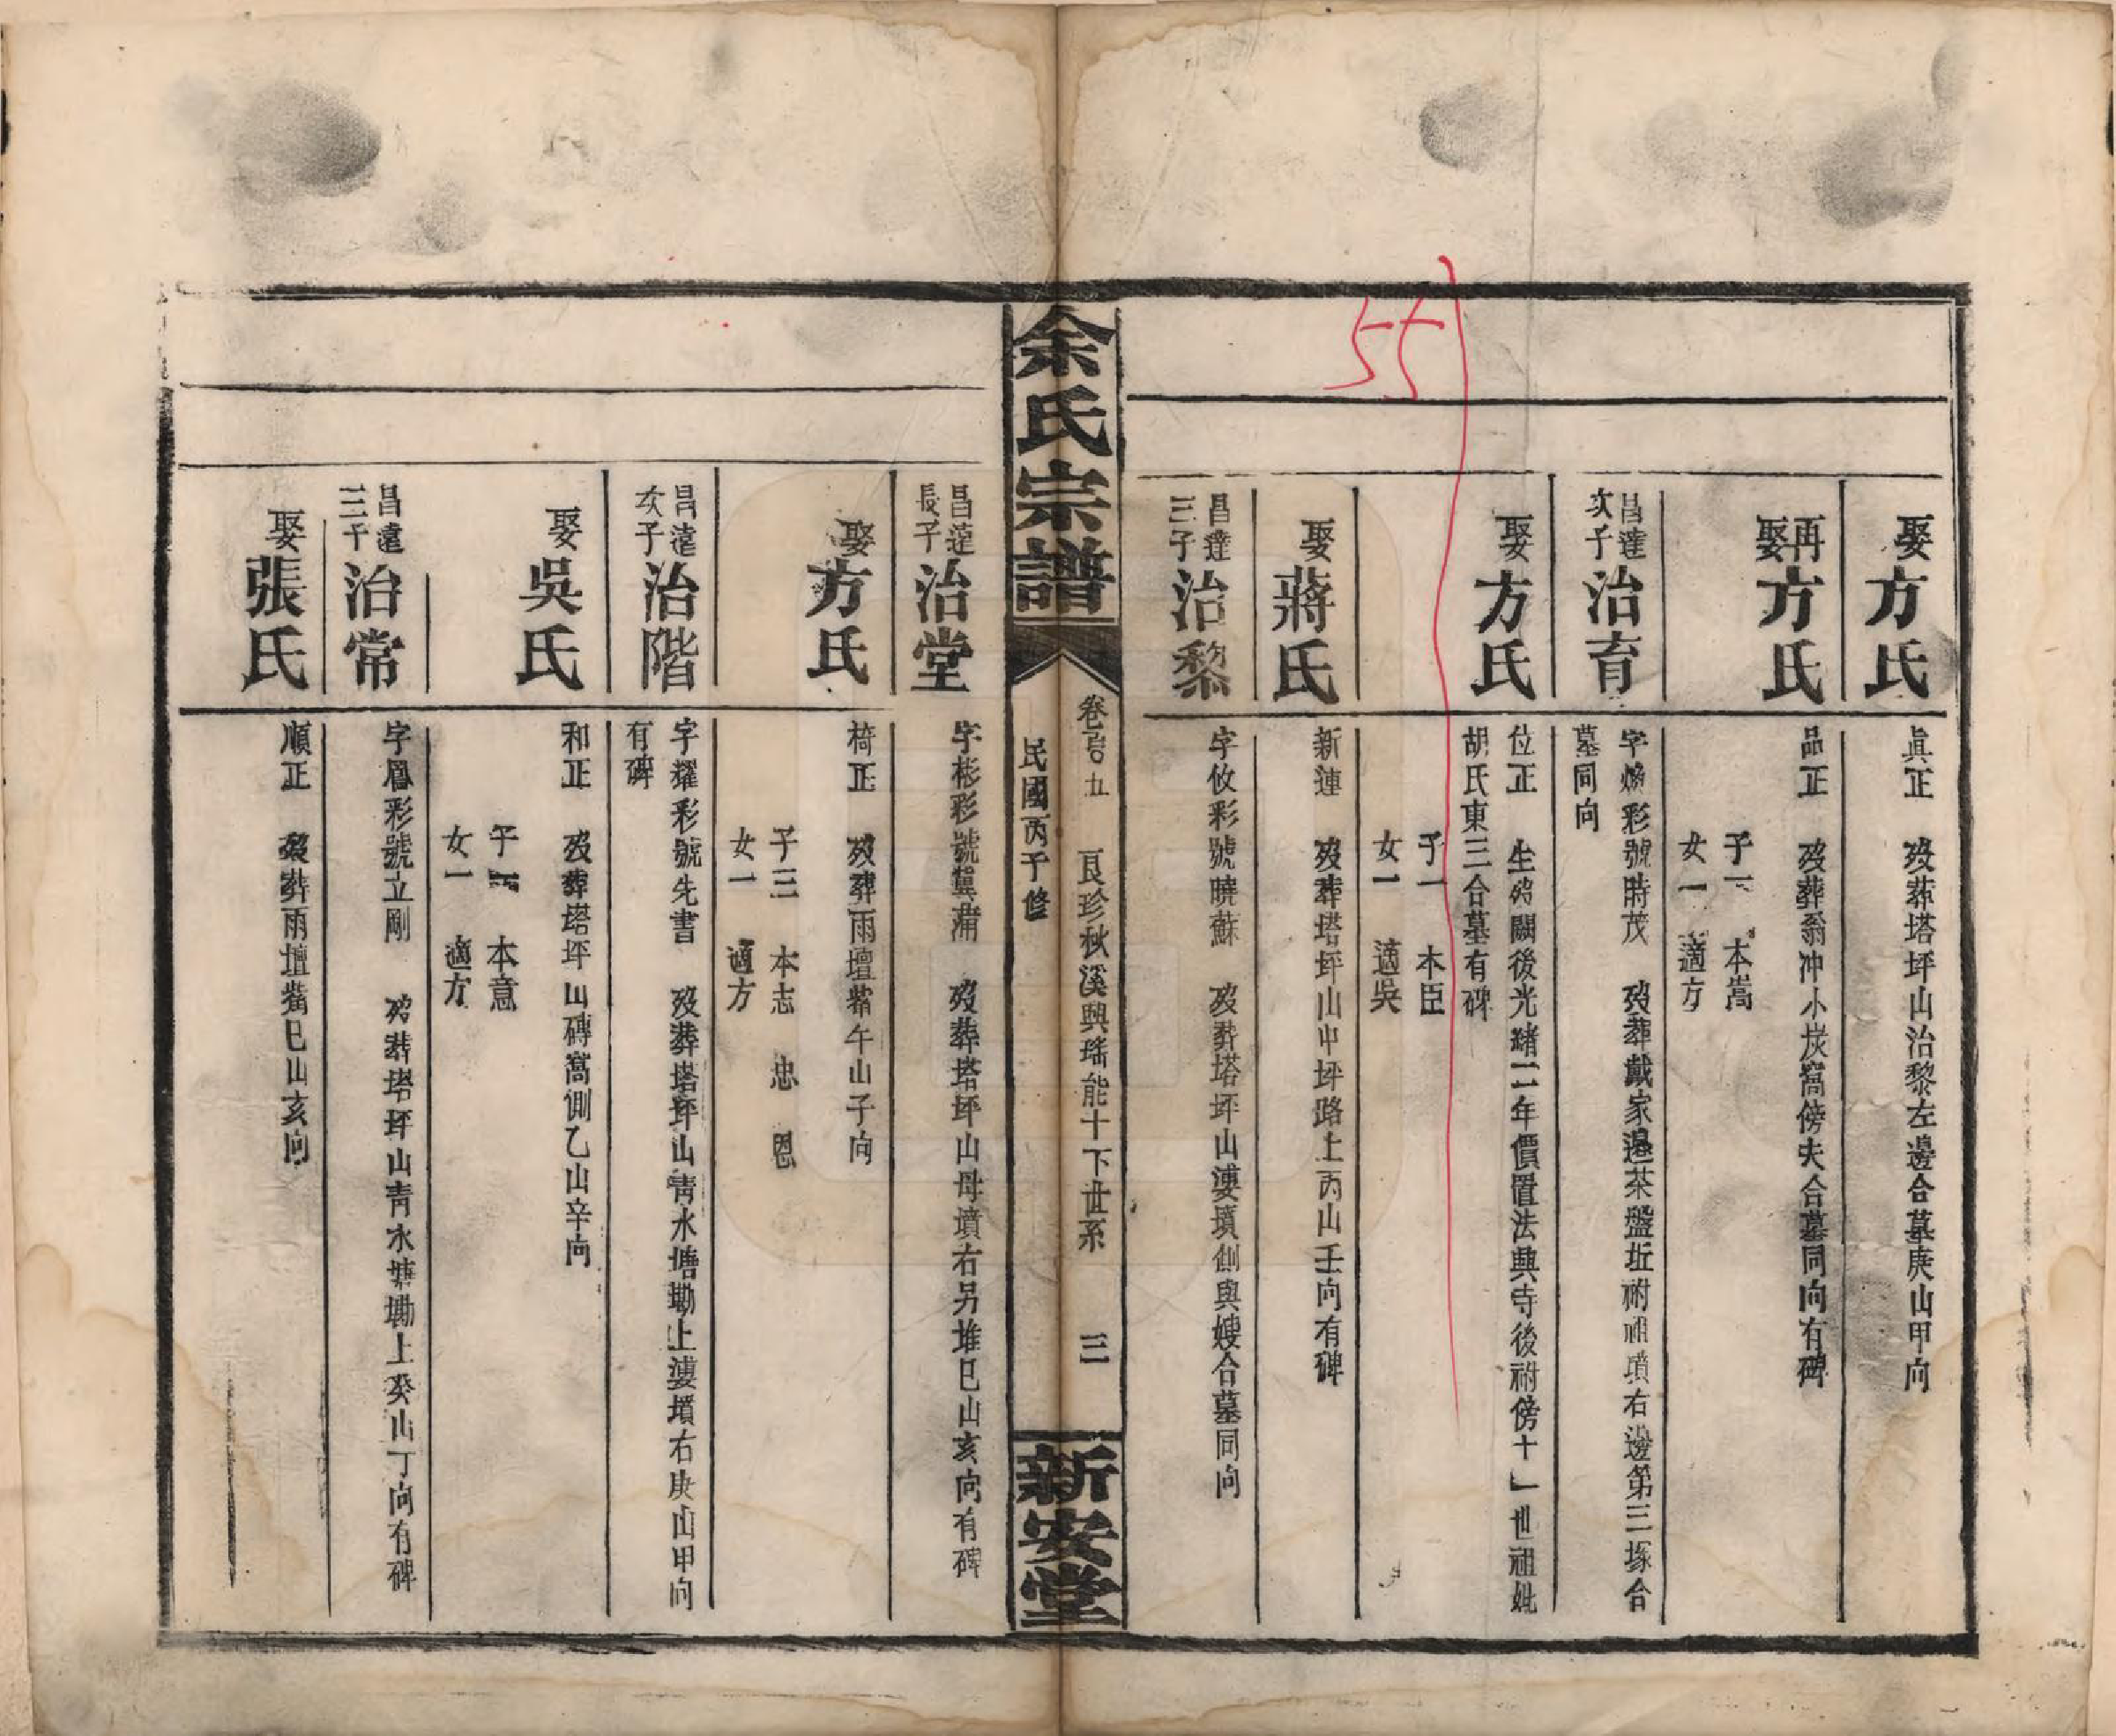 55
娶方氏
眞正 歿葬塔坪山治黎左邊合墓庚山甲向
再娶方氏
品正 歿葬翁冲小炭窩傍夫合墓同向有碑
子一 本嵩
女一 適方
昌達次子治育
字煥彩號時茂 歿葬戴家邊茶盤坵祔祖墳右邊第三塚合
墓同向
娶方氏
位正 生歿闕後光緒二年價置法興寺後祔傍十一世祖妣
胡氏東三合墓有碑
子一 本臣
女一 適吳
娶蔣氏
新連 歿葬塔坪山中坪路上丙山壬向有碑
昌達三子治黎
字攸彩號曉蘇 歿葬塔坪山婆墳側與嫂合墓同向
余氏宗譜
卷 五 良珍秋溪興瑤能十下世系 三
民國丙子修
新安堂
昌蓮長子治堂
字彬彩號冀蒲 歿葬塔坪山母墳右另堆巳山亥向有碑
娶方氏
椅正 歿葬雨壇 午山子向
子三 本志 忠 恩
女一 適方
昌蓮次子治階
字耀彩號先書 歿葬塔坪山靑水塘墈上婆墳右庚山甲向
有碑
娶吳氏
和正 歿葬塔坪山磚窩側乙山辛向
子一 本意
女一 適方
昌蓮三子治常
字鳳彩號立剛 歿葬塔坪山靑水塘墈上癸山丁向有碑
娶張氏
順正 歿葬雨壇 巳山亥向